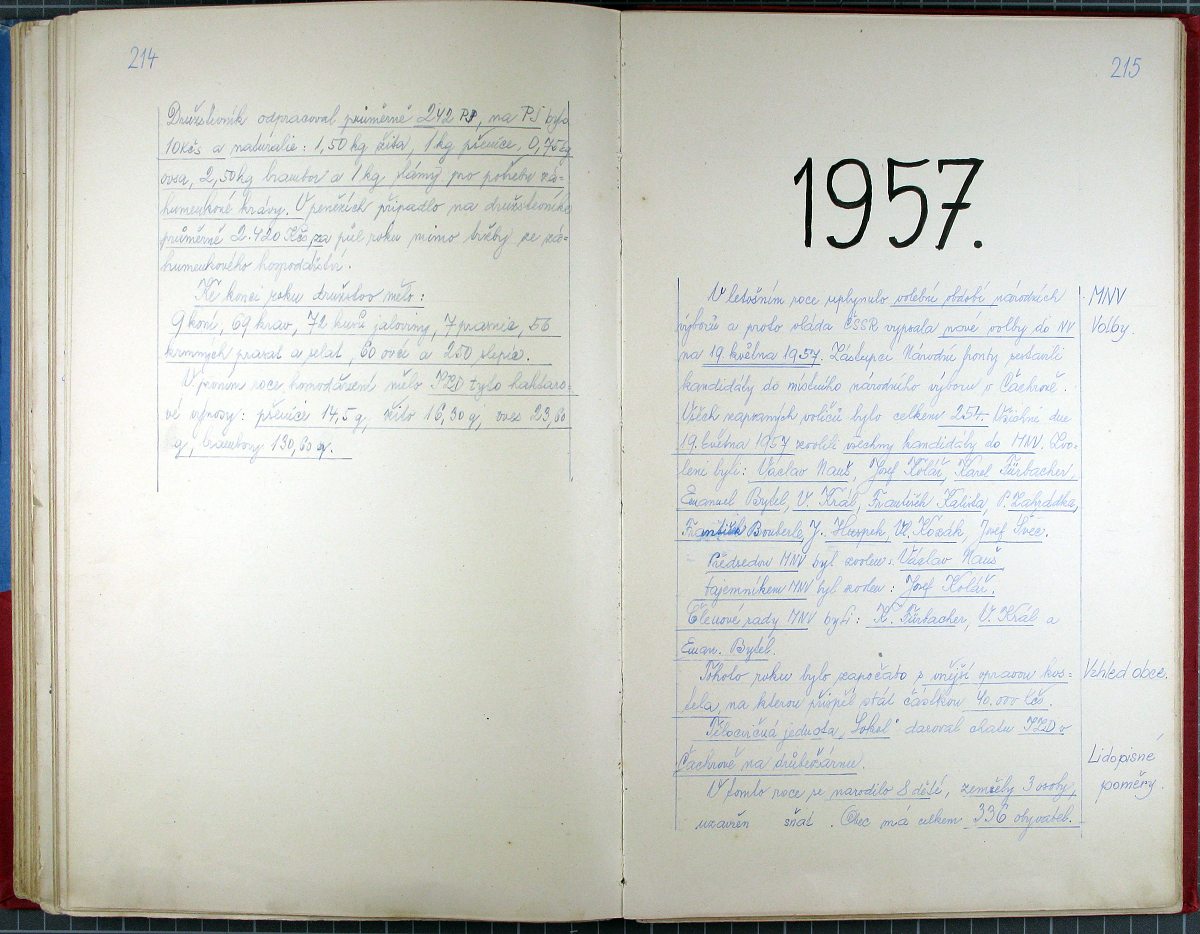 214
Družstevník odpracoval průměrně 242 PJ, na PJ bylo
10 Kčs a naturálie: 1,50 kg žita, 1 kg pšenice, 0,75 kg
ovsa, 2,50 kg brambor a 1 kg slámy pro potřebu zá-
humenkové krávy. V penězích připadlo na družstevníka
průměrně 2.420 Kčs za půl roku mimo tržby ze zá-
humenkového hospodářství.
Ke konci roku družstvo mělo:
9 koní, 69 krav, 72 kusů jaloviny, 7 prasnic, 56
krmných prasat a selat, 60 ovcí a 250 slepic.
V prvním roce hospodaření mělo JZD tyto hektaro-
vé výnosy: pšenice 14,5 q, žito 16,30 q, oves 23,60
q, brambory 130,60 q.
215
1957.
V letošním roce uplynulo volební období národních
výborů a proto vláda ČSSR vypsala nové volby do NV
na 19. května 1957. Zástupci Národní fronty sestavili
kandidáty do místního národního výboru v Čachrově.
Všech zapsaných voličů bylo celkem 254. Volební dne
19. května 1957 zvolili všechny kandidáty do MNV. Zvo-
leni byli: Václav Nauš, Josef Kolář, Karel Fürbacher
Emanuel Bytel, V. Král, František Kalista, P. Zahrádka,
František Bouberle, J. Hospek, Vl. Kozák, Josef Švec.
Předsedou MNV byl zvolen: Václav Nauš
tajemníkem MNV byl zvolen: Josef Kolář.
Členové rady MNV byli: K. Fürbacher, V. Král a
Eman. Bytel.
Tohoto roku bylo započato s vnější opravou kos-
tela, na kterou přispěl stát částkou 40.000 Kčs.
Tělocvičná jednota "Sokol" daroval chatu JZD v
Čachrově na drůbežárnu.
V tomto roce se narodilo 8 dětí, zemřely 3 osoby,
uzavřen sňat. Obec má celkem 336 obyvatel.
MNV
Volby.
Vzhled obce.
Lidopisné
poměry.